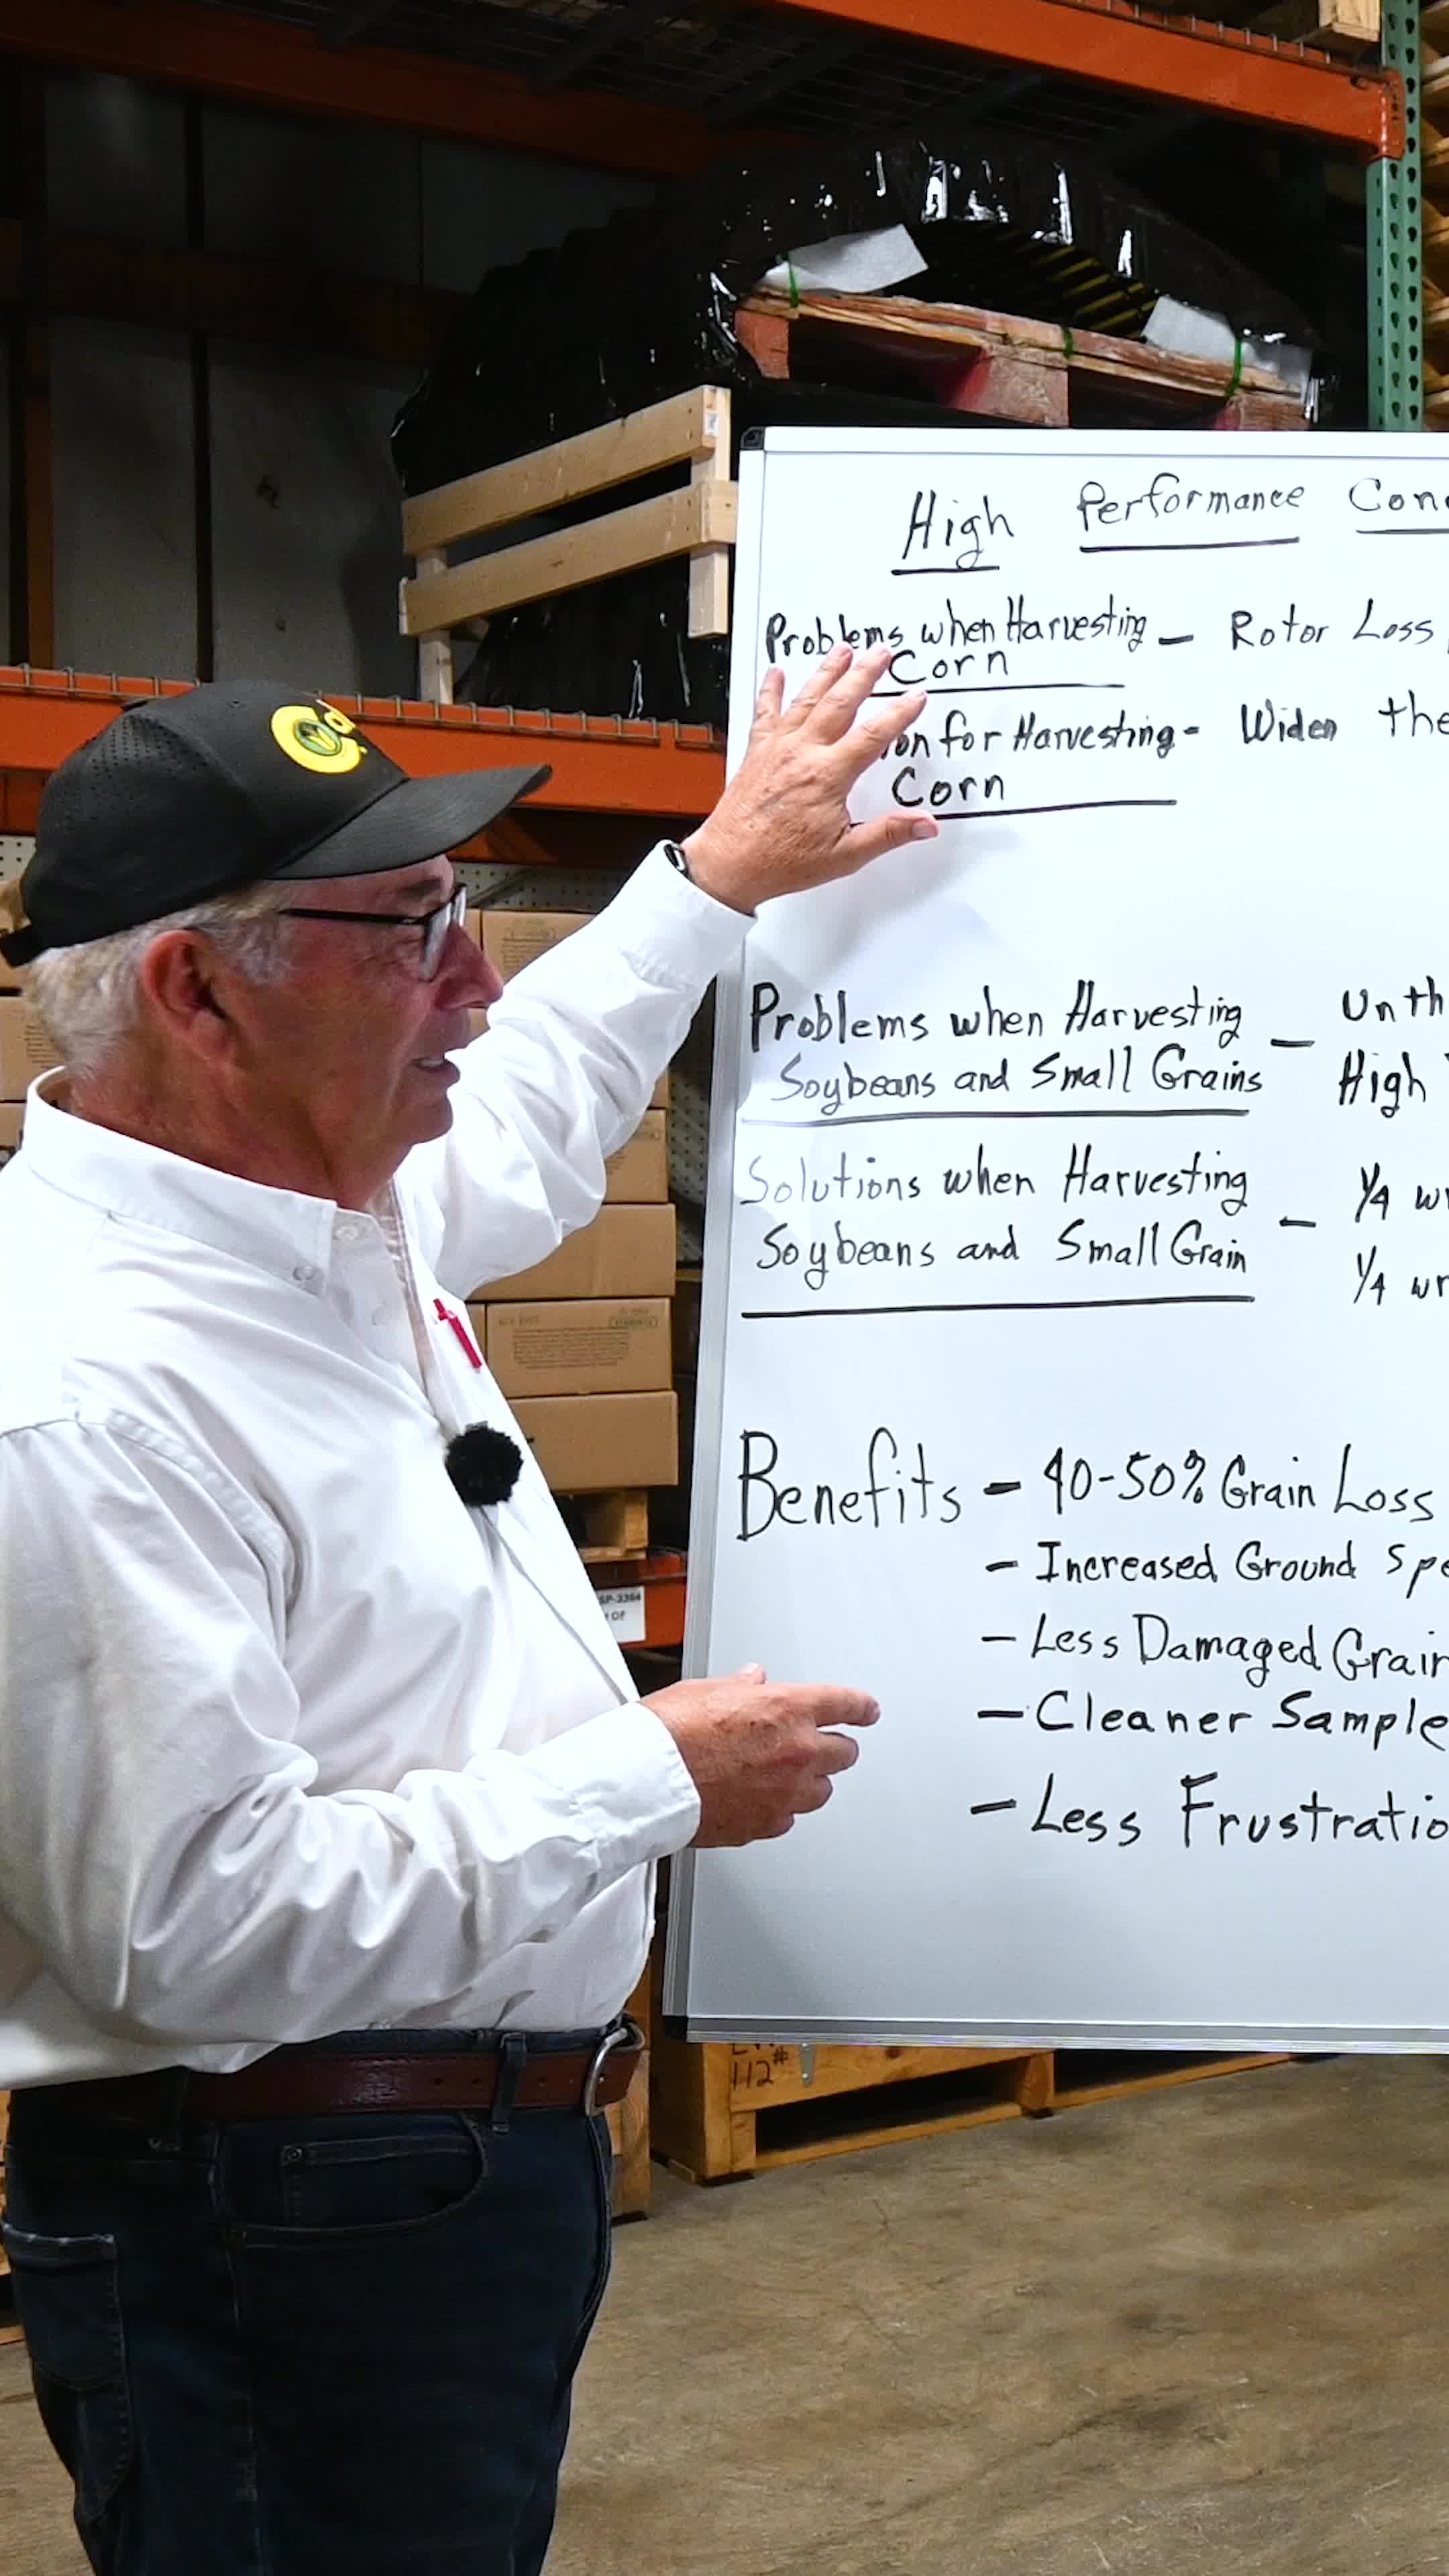 High Performance Con
Problems when Harvesting - Rotor Loss
Corn
on for Harvesting - Widen the
Corn
Problems when Harvesting - Unth
Soybeans and Small Grains High
Solutions when Harvesting - 1/4 wr
Soybeans and Small Grain 1/4 wr
Benefits - 40-50% Grain Loss
- Increased Ground Spe
- Less Damaged Grain
- Cleaner Sample
- Less Frustratio
SP-3364
OF
112#